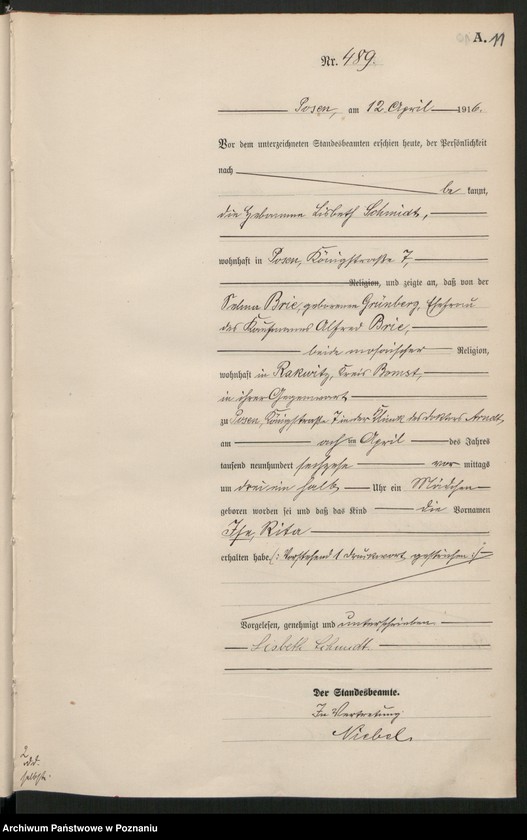 A. 11
Nr. 489.
Posen, am 12 April 1916.
Vor dem unterzeichneten Standesbeamten erschien heute, der Persönlichkeit
nach
be kannt,
die Hebamme Lisbeth Schmidt,
wohnhaft in Posen, Königstraße 7,
Religion, und zeigte an, daß von der
Selma Brie, geborenen Grünberg, Ehefrau
des Kaufmanns Alfred Brie,
beide mosaischer Religion,
wohnhaft in Rakwitz, Kreis Bomst,
in ihrer Gegenwart
zu Posen, Königstraße 7 in der Klinik des Doktors Arndt,
am acht en April des Jahres
tausend neunhundert sechzehn vor mittags
um drei ein halb Uhr ein Mädchen
geboren worden sei und daß das Kind die Vornamen
Ilse, Rita
erhalten habe. (: Vorstehend 1 Druckwort gestrichen :)
Vorgelesen, genehmigt und unterschrieben
Lisbeth Schmidt.
Der Standesbeamte.
In Vertretung
Niebel.
Archiwum Państwowe w Poznaniu